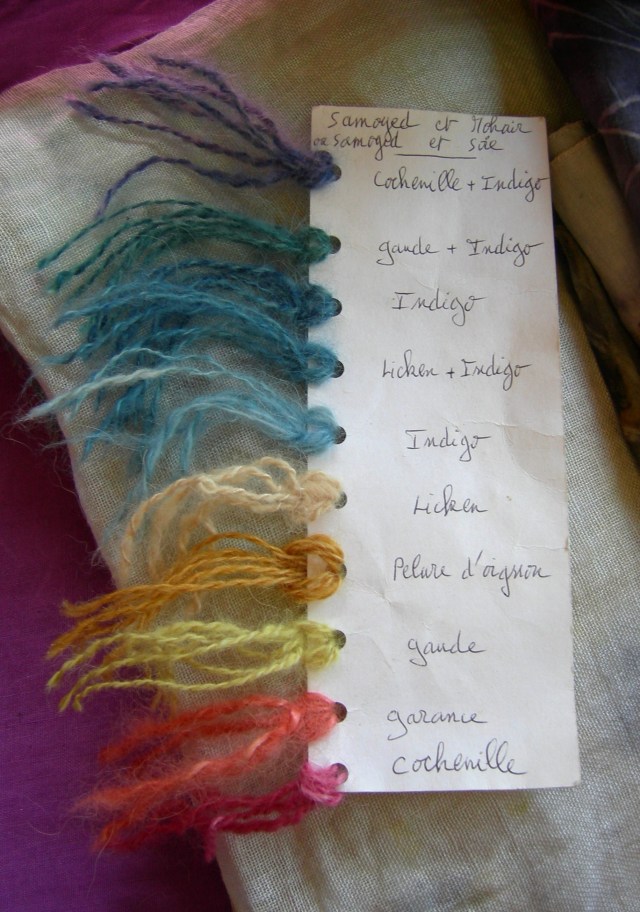 Samoyed et Mohair
ou Samoyed et soie
Cochenille + Indigo
gaude + Indigo
Indigo
Licken + Indigo
Indigo
Licken
Pelure d'oignon
gaude
garance
cochenille